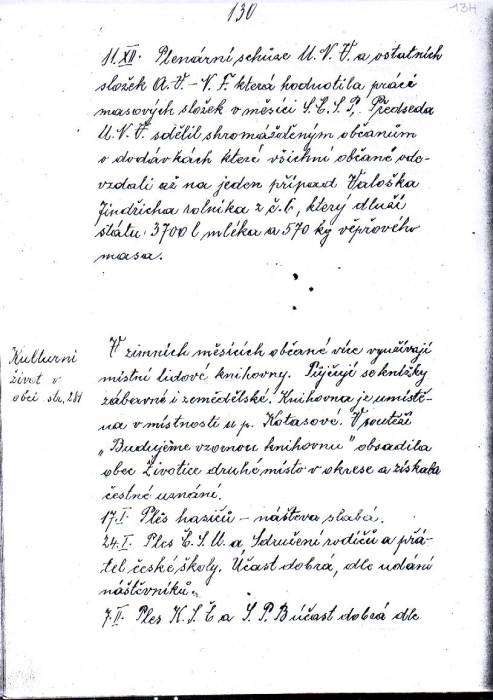 130
134
11.XII. Plenární schůze M.N.V. a ostatních
složek A.V.-N.F. která hodnotila práci
masových složek v měsíci S.Č.S.P. Předseda
M.N.V. sdělil shromážděným občanům
o dodávkách které všichni občané ode-
vzdali až na jeden případ Valoška
Jindřicha rolníka z č.6, který dluží
státu 3700 l mléka a 570 kg vepřového
masa.
Kulturní
život v
obci str. 281
V zimních měsících občané více využívají
místní lidové knihovny. Půjčují se knížky
zábavné i zemědělské. Knihovna je umístě-
na v místnosti u p. Kotasové. V soutěži
„Budujeme vzornou knihovnu" obsadila
obec Životice druhé místo v okrese a získala
čestné uznání.
17.I. Ples hasičů - návštěva slabá.
24.I. Ples Č.S.M. a Sdružení rodičů a přá-
tel české školy. Účast dobrá, dle udání
náštěvníků.
7.II. Ples K.S.Č a S.P.B účast dobrá dle